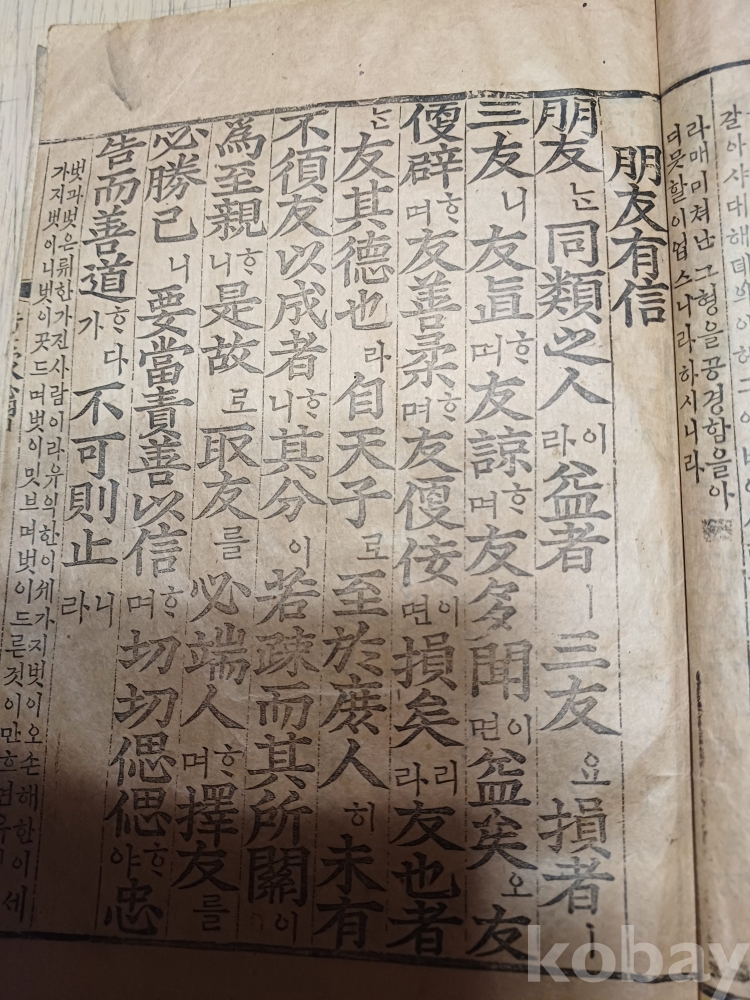 라매미쳐난그형을공경함을아
디못할이업스니라하시니라
朋友有信
朋友는同類之人이라益者ㅣ三友요損者ㅣ
三友니友直ᄒᆞ며友諒ᄒᆞ며友多聞이면益矣오友
便辟ᄒᆞ며友善柔ᄒᆞ며友便佞이면損矣리라友也者
는友其德也라自天子로至於庶人히未有
不須友以成者ᄒᆞ니其分이若疎而其所關이
爲至親ᄒᆞ니是故로取友를必端人ᄒᆞ며擇友를
必勝己니要當責善以信ᄒᆞ며切切偲偲ᄒᆞ야忠
告而善道ᄒᆞ다가不可則止니라
벗과벗은類한가진사람이라유익한이세가지벗이오손해한이세
가지벗이니벗이곳드며벗이밋브며벗이드른것이만흐면유
kobay